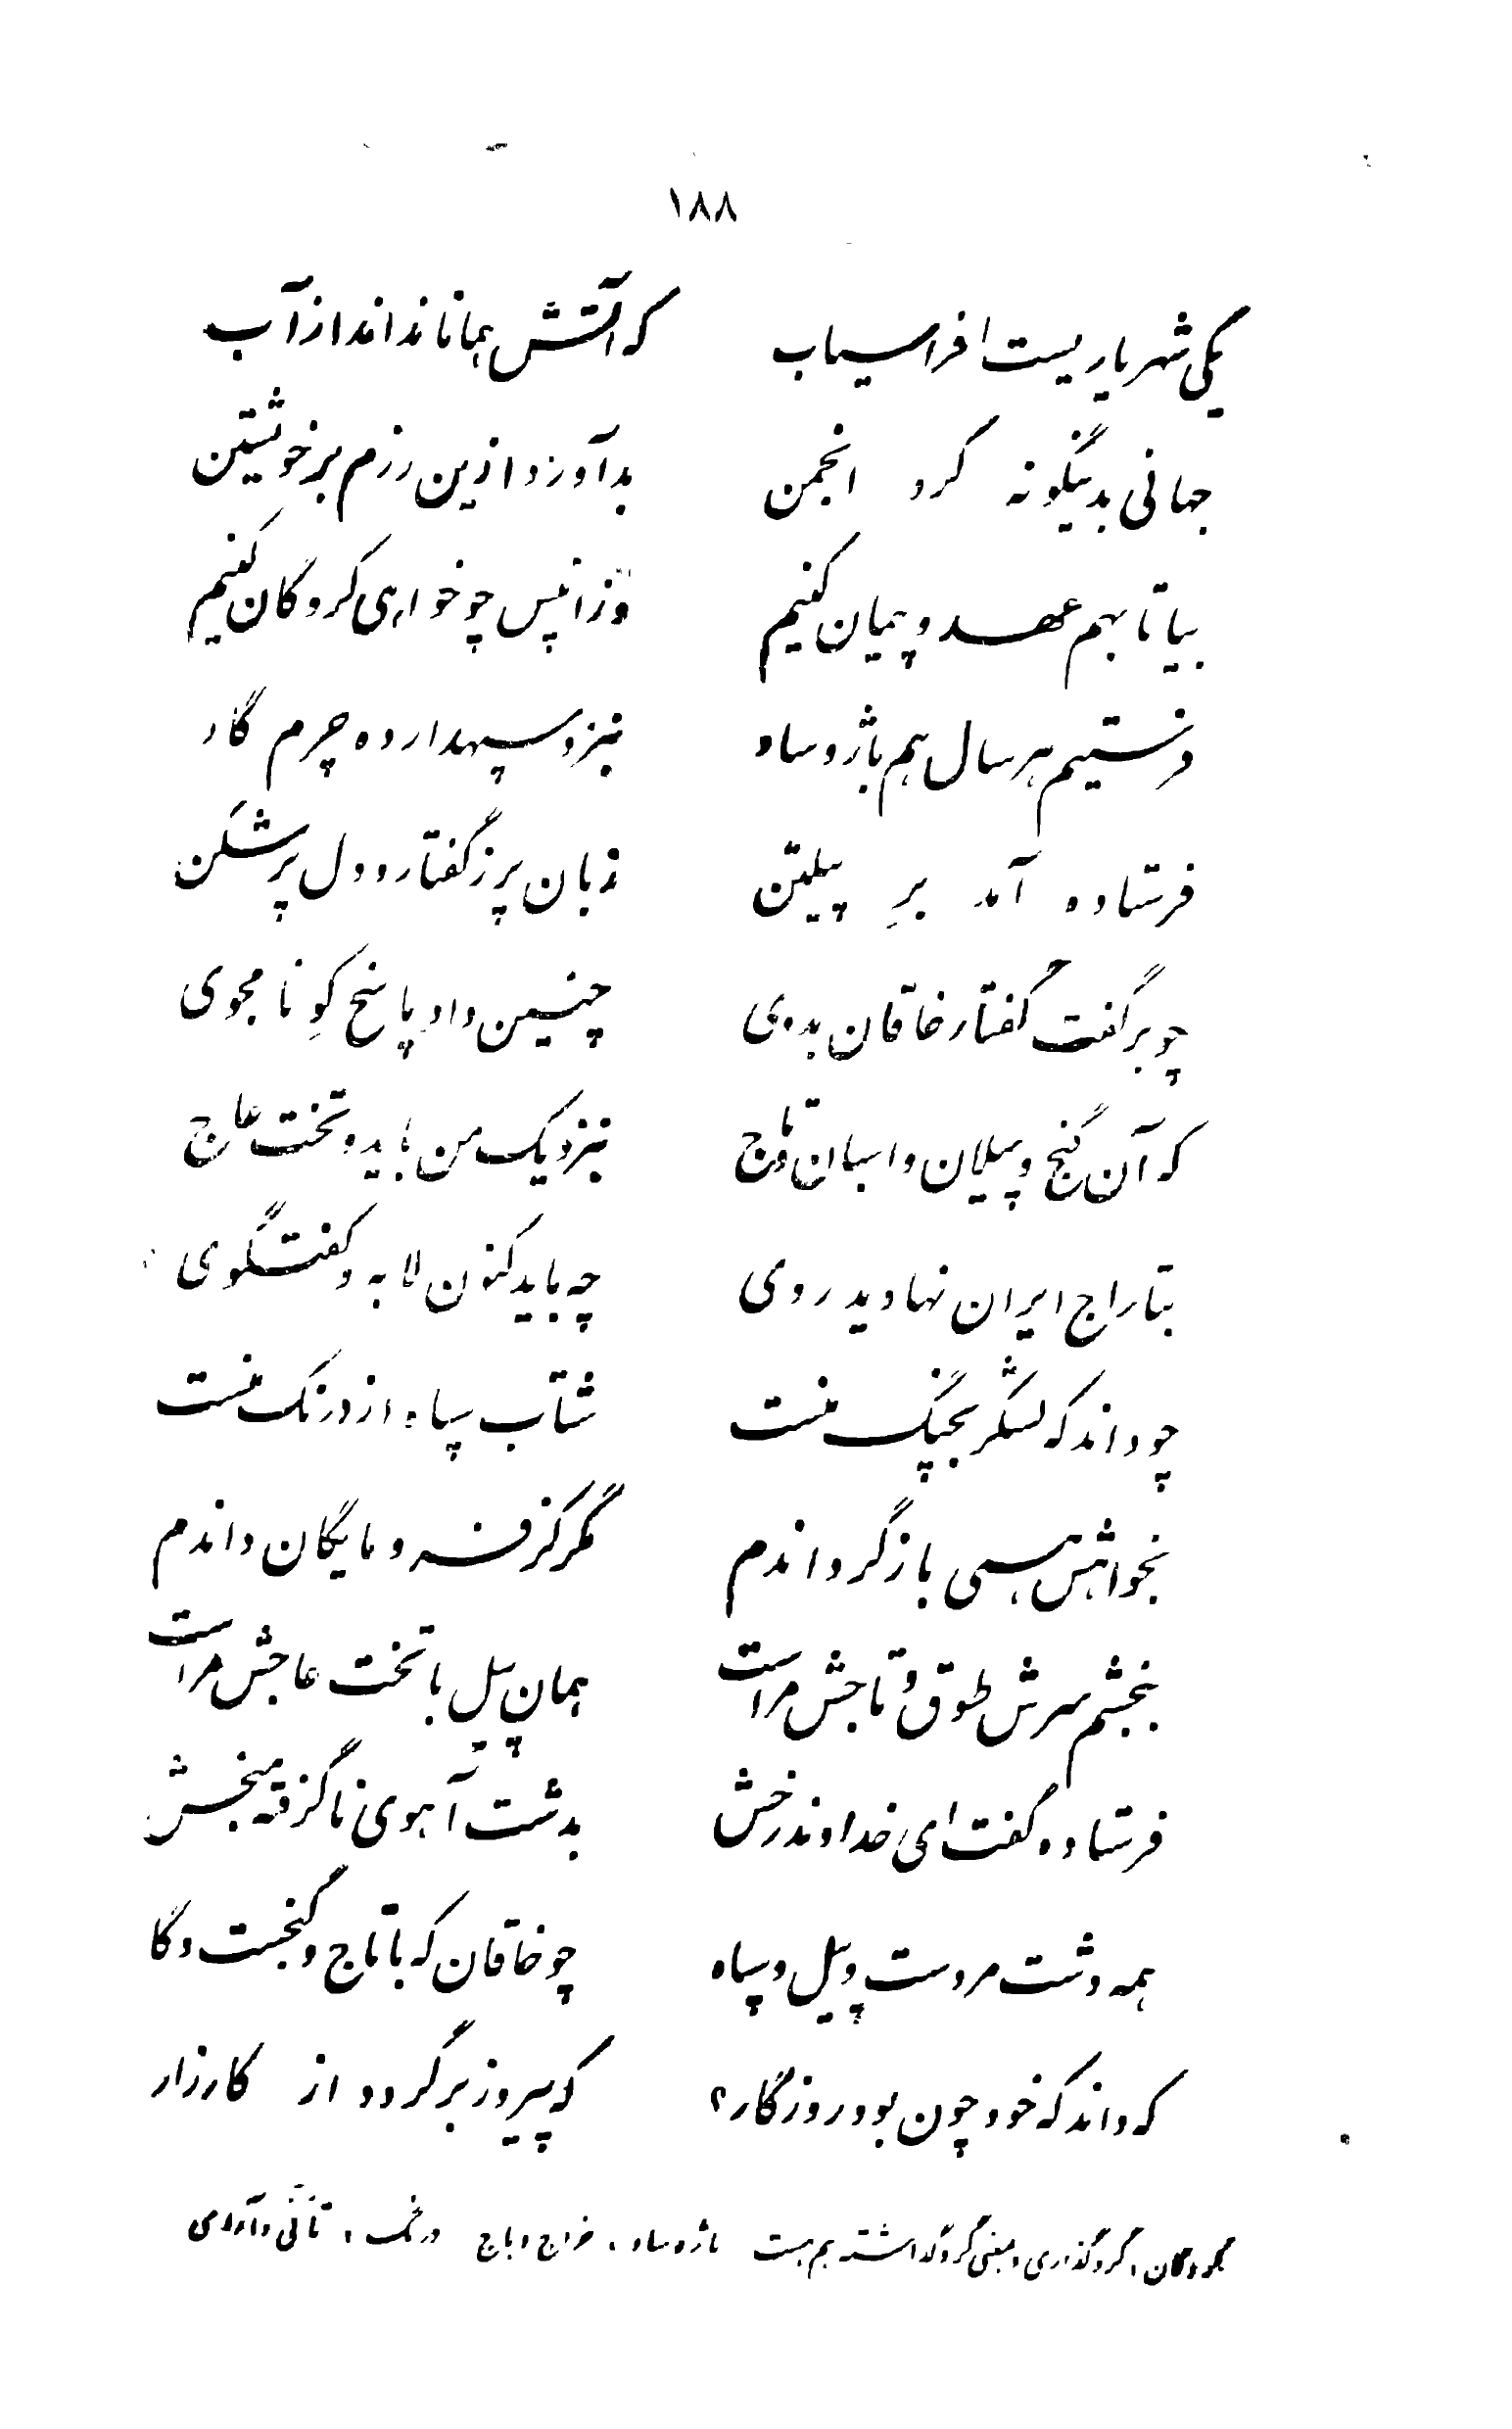 ۱۸۸
یکی شهریاریست افراسیاب که آتش همانا نداند از آب
جهانی بدینگونه کرد انجمن بد آورد ازین رزم بر خویشتن
بیا تا بهم عهد و پیمان کنیم وزانپس چو خواهی گروگان کنیم
فرستیم هر سال هم باژ و ساو بنزد سپهدار ده چرم گاو
فرستاده آمد برِ پیلتن زبان پر ز گفتار و دل پر شکن
چو بر گفت گفتار خاقان بدوی چنین داد پاسخ گوِ نامجوی
که آن گنج و پیلان و اسبان و تاج بنزدیک من باید و تخت عاج
بتاراج ایران نهادید روی چه باید کنون لابه و گفتگوی
چو داند که لشکر بچنگ منست شتاب سپاه از درنگ منست
بخواهش همی بازگرداندم مگر کز فرومایگان داندم
ببخشم سرش طوق و تاجش مراست همان پیل با تخت عاجش مراست
فرستاده گفت ای خداوند رخش بدشت آهوی ناگرفته مبخش
همه دشت مردست و پیل و سپاه چو خاقان که با تاج و گنجست و گا
که داند که خود چون بود روزگار؟ که پیروز برگردد از کارزار
گروگان، گروگذاری و مبنی گروگذاشته هم هست باژ و ساو، خراج و باج درنگ، تأنّی و آرامی